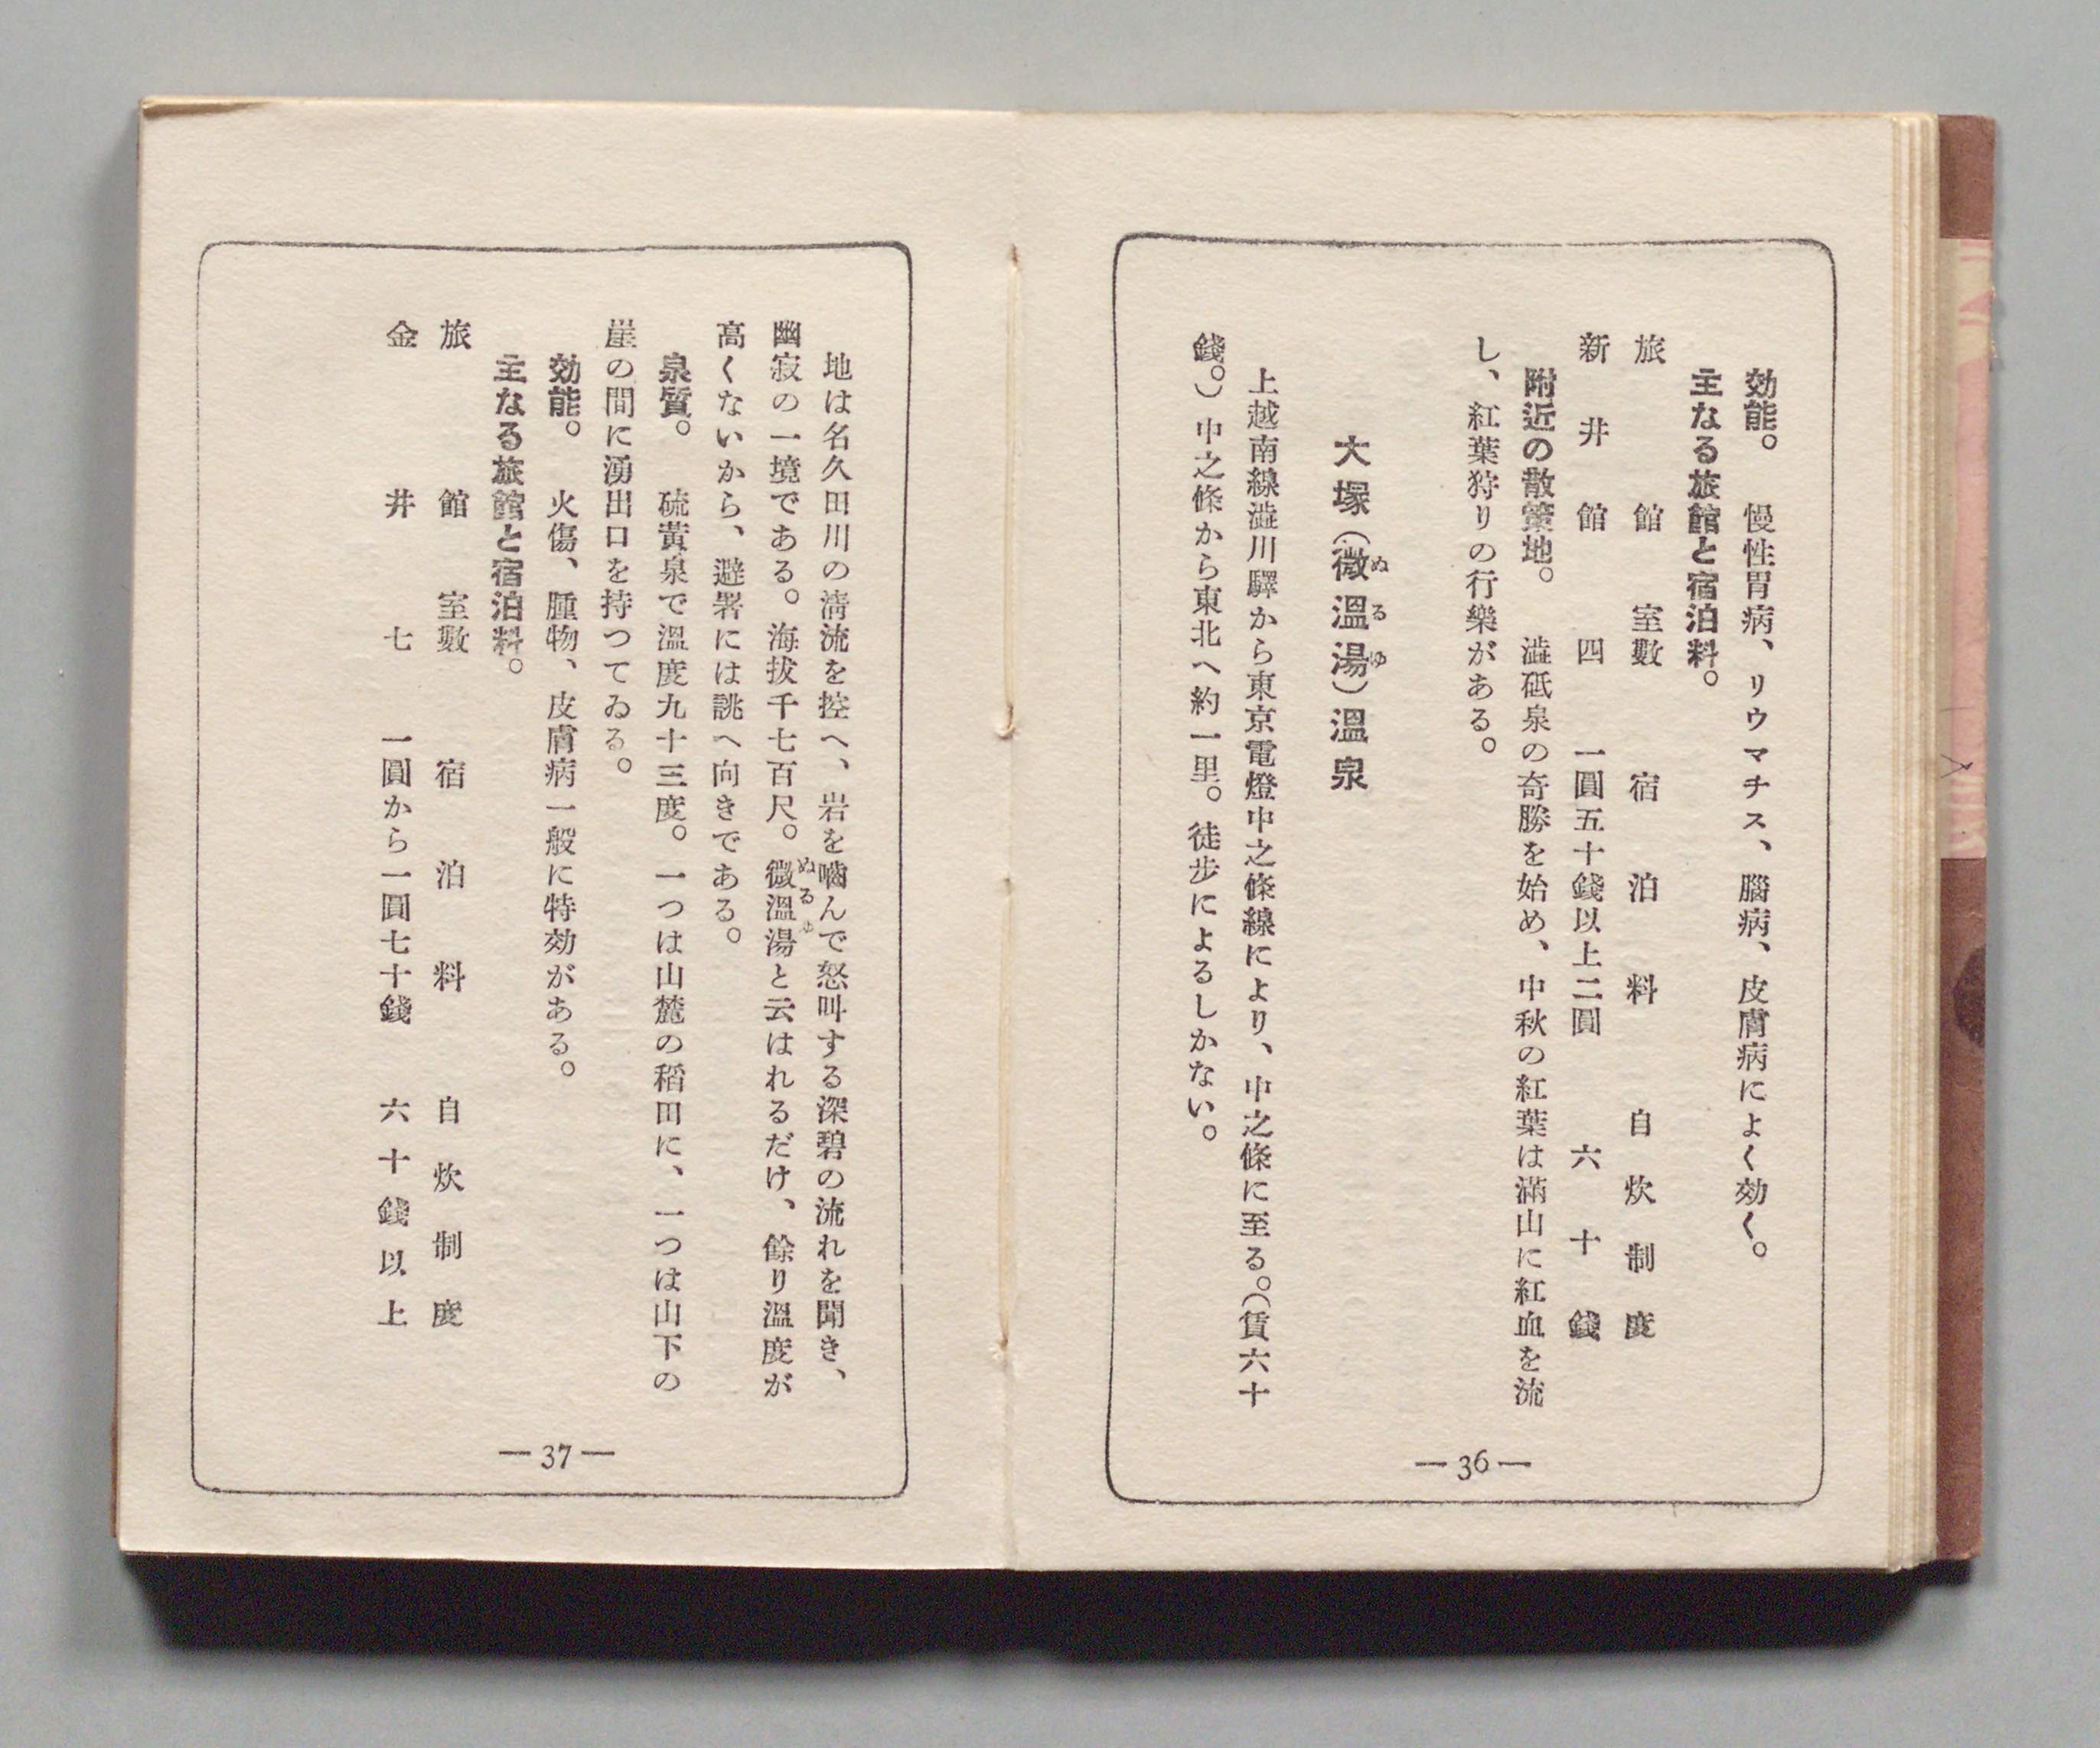 効能。　慢性胃病、リウマチス、腦病、皮膚病によく効く。
主なる旅館と宿泊料。
旅館　室數　宿泊料　自炊制度
新井館　四　一圓五十錢以上二圓　六十錢
附近の散策地。　澁砥泉の奇勝を始め、中秋の紅葉は滿山に紅血を流
し、紅葉狩りの行樂がある。
大塚（微溫湯）溫泉
ぬるゆ
上越南線澁川驛から東京電燈中之條線により、中之條に至る。（賃六十
錢。）中之條から東北へ約一里。徒歩によるしかない。
—36—
地は名久田川の淸流を控へ、岩を嚙んで怒叫する深碧の流れを聞き、
幽寂の一境である。海拔千七百尺。微溫湯と云はれるだけ、餘り溫度が
ぬるゆ
高くないから、避暑には誂へ向きである。
泉質。　硫黃泉で溫度九十三度。一つは山麓の稻田に、一つは山下の
崖の間に湧出口を持つてゐる。
効能。　火傷、腫物、皮膚病一般に特効がある。
主なる旅館と宿泊料。
旅館　室數　宿泊料　自炊制度
金井　七　一圓から一圓七十錢　六十錢以上
—37—